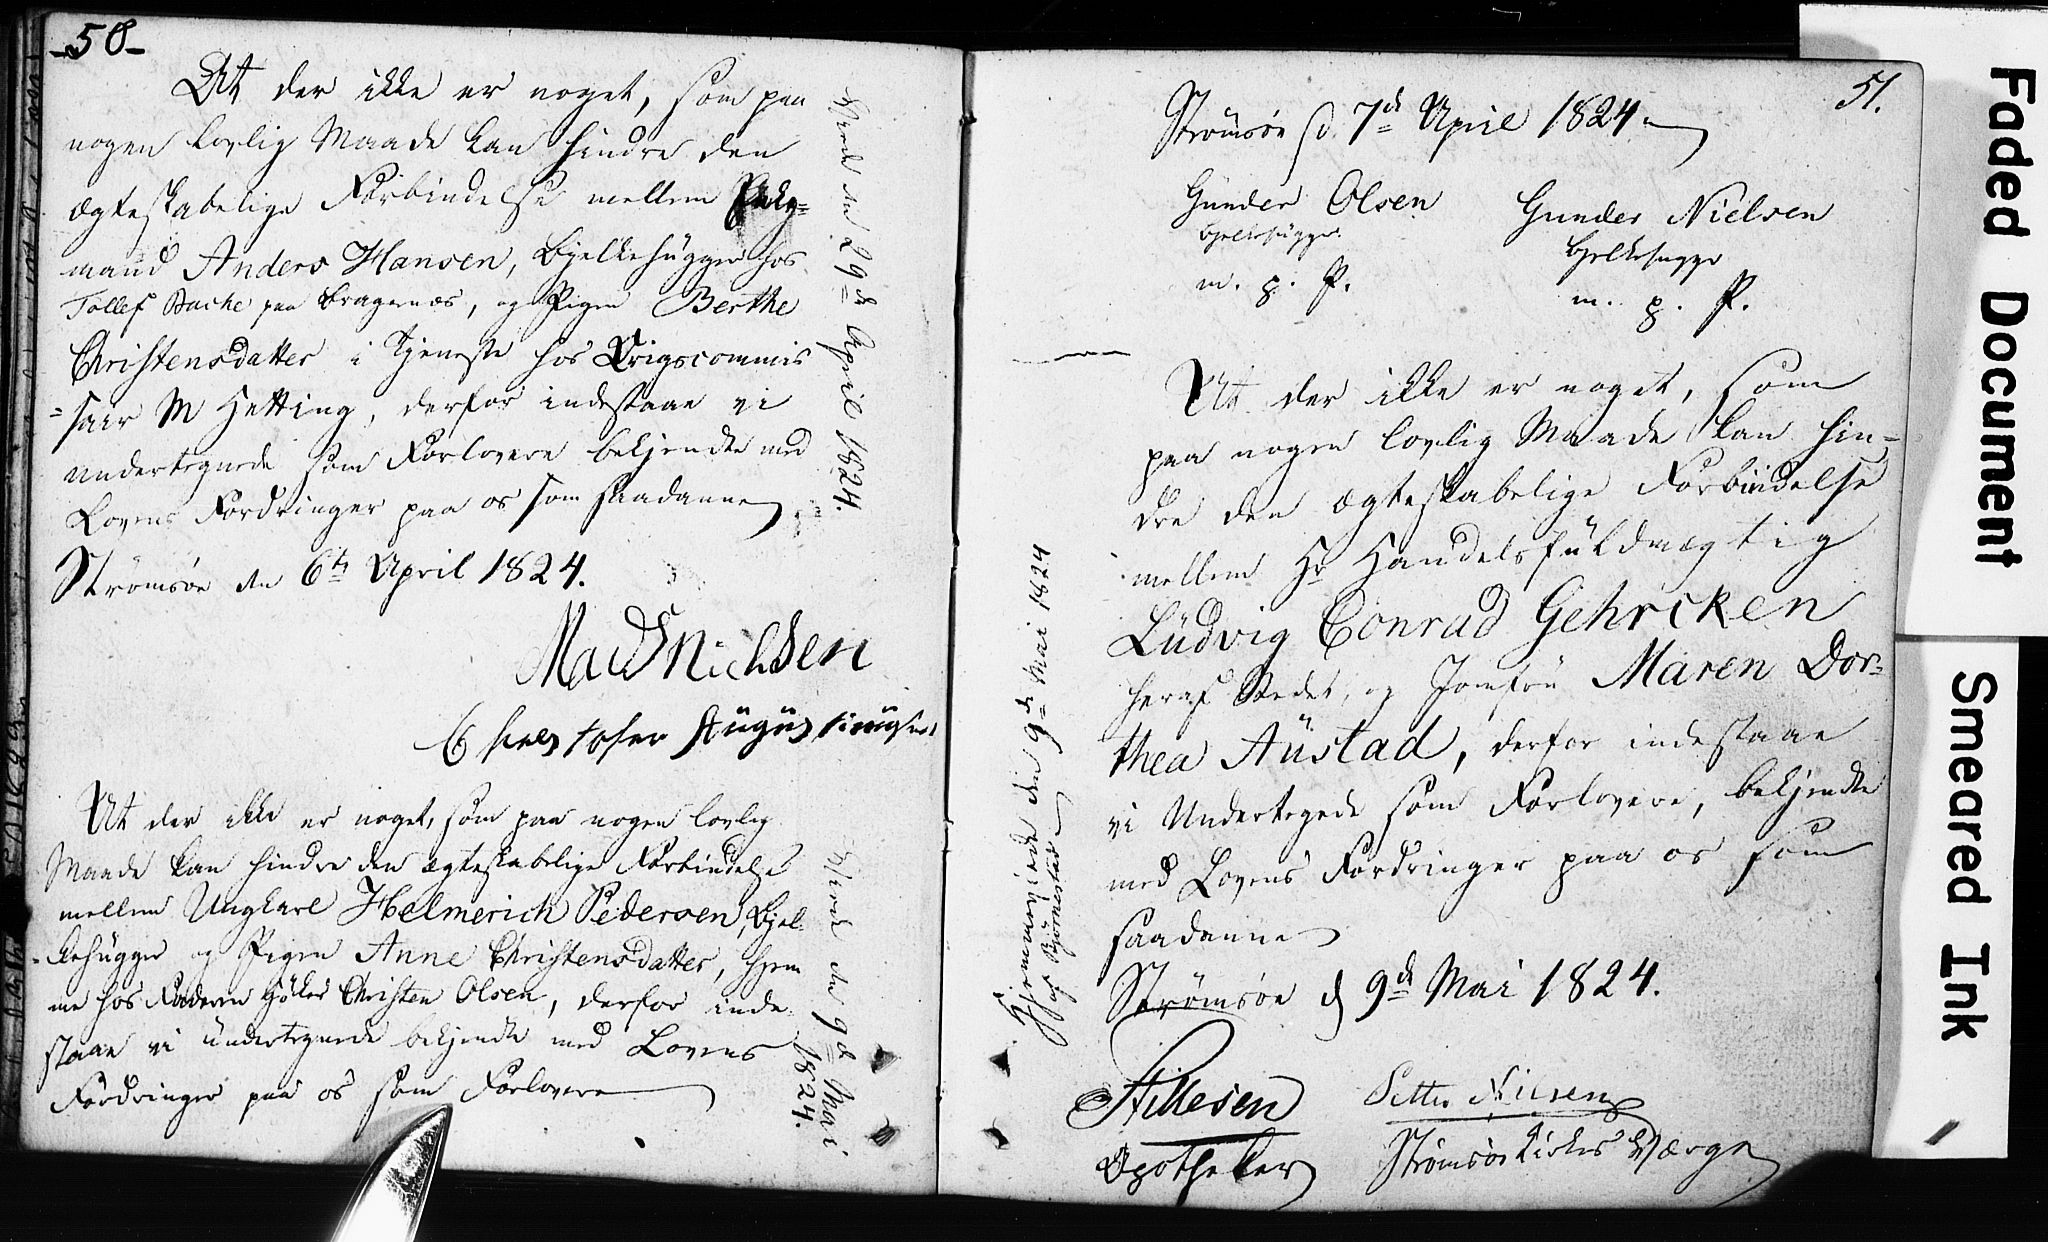 -50-
At der ikke er noget, som paa
nogen lovlig Maade kan hindre den
ægteskabelige Forbindelse mellem
mand Anders Hansen, Bjelkehugger hos
Tollef Bache paa Bragernæs, og Pigen Berthe
Christensdatter i Tjeneste hos Krigscommis
=sair M Hetting, derfor indestaae vi
undertegnede som Forlovere bekjendte med
Lovens Fordringer paa os som saadanne
Strömsöe den 6te April 1824.
Mads Nielsen
Christofer
Viede den 29de April 1824.
At der ikke er noget, som paa nogen lovlig
Maade kan hindre den ægteskabelige Forbindelse
mellem Ungkarl Helmerich Pedersen, Bjel-
kehugger og Pigen Anne Christensdatter, hjem
me hos Faderen Christen Olsen, derfor inde
staae vi undertegnede bekjendte med Lovens
Fordringer paa os som Forlovere
Viede den 9de Mai
1824.
51.
Strömsöe d. 7de April 1824.
Gunder Olsen Gunder Nielsen
Bjelkehugger Bjelkehugger
m. p. P. m. p. P.
At der ikke er noget, som
paa nogen lovlig Maade kan hin=
dre den ægteskabelige Forbindelse
mellem Hr Handelsfuldmægtig
Ludvig Conrad Gehrcken
heraf Stedet, og Jomfru Maren Dor=
thea Austad, derfor indestaae
vi Undertegede som Forlovere, bekjendte
med Lovens Fordringer paa os som
saadanne
Strømsøe d 9de Mai 1824.
Hjemmeviede den 9de Mai 1824
af Bjørnestad
Apotheker Strømsøe Kirkes Værge
Faded Document
Smeared Ink